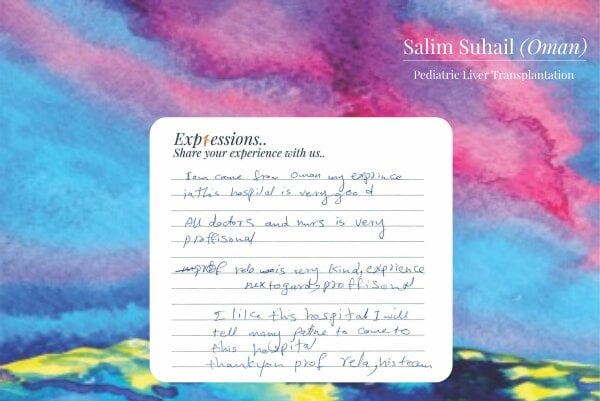 Salim Suhail (Oman)
Pediatric Liver Transplantation
Expressions..
Share your experience with us..
I am came from Oman my exprince
in this hospital is very good
All doctors and nurs is very
proffisonal
prof rela was is very kind, exprience
next to gard, proffisonal
I like this hospital I will
tell many patine to come to
this hospital
thank you prof rela, his team